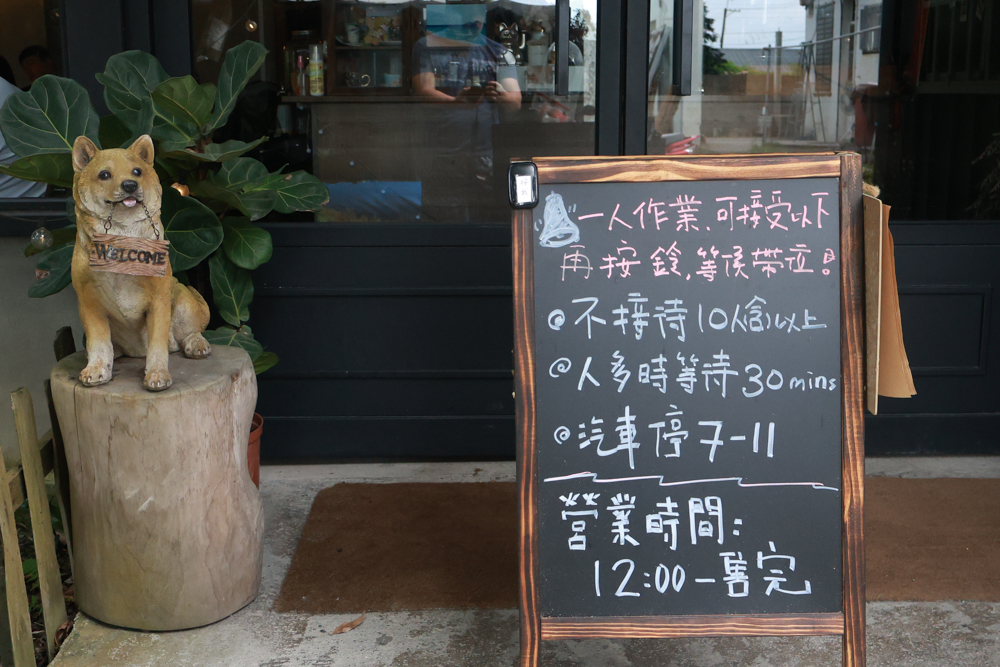 WELCOME
一人作業,可接受以下
再按鈴,等候帶位!
@不接待10人(含)以上
@人多時等待30mins
@汽車停7-11
營業時間:
12:00-售完